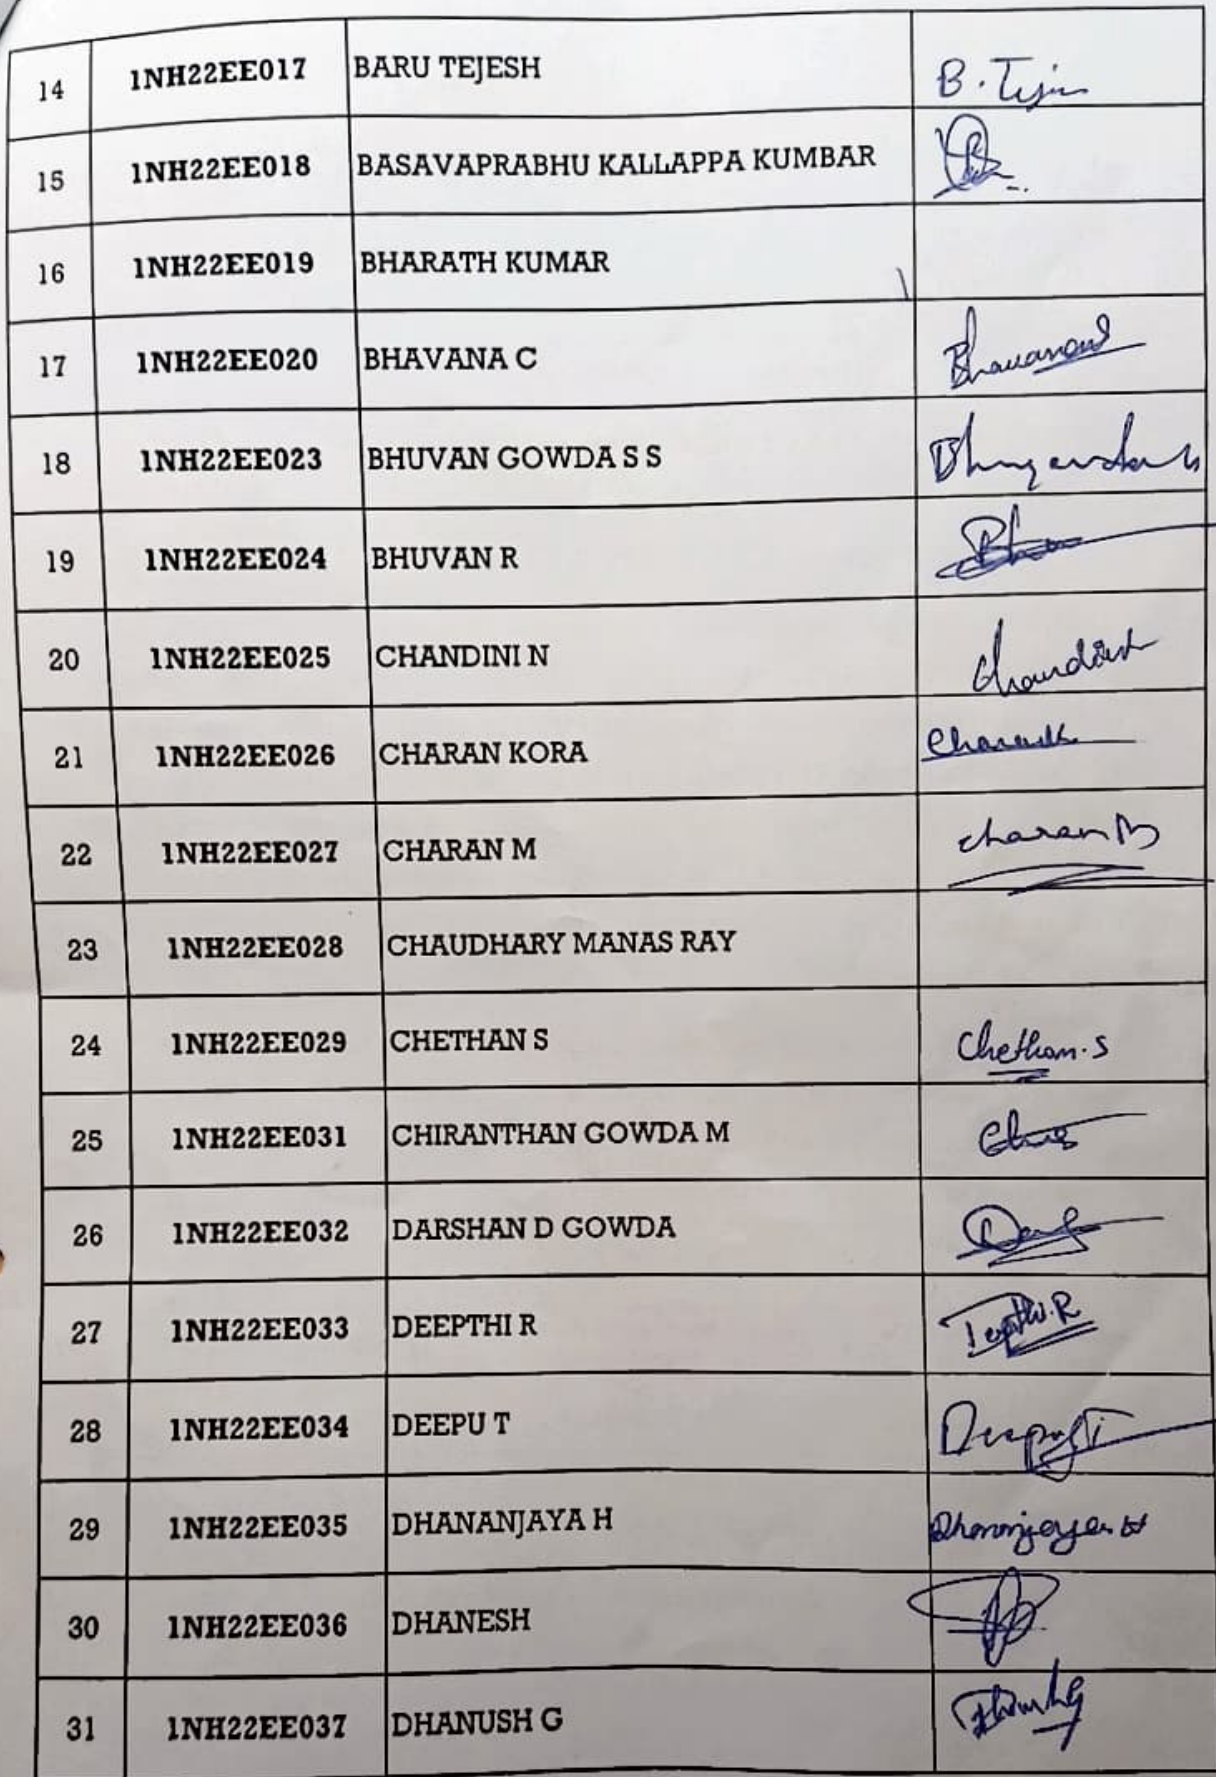 14 1NH22EE017 BARU TEJESH B. Tejes
15 1NH22EE018 BASAVAPRABHU KALLAPPA KUMBAR
16 1NH22EE019 BHARATH KUMAR
17 1NH22EE020 BHAVANA C
18 1NH22EE023 BHUVAN GOWDA S S
19 1NH22EE024 BHUVAN R
20 1NH22EE025 CHANDINI N
21 1NH22EE026 CHARAN KORA
22 1NH22EE027 CHARAN M charan M
23 1NH22EE028 CHAUDHARY MANAS RAY
24 1NH22EE029 CHETHAN S Chethan.S
25 1NH22EE031 CHIRANTHAN GOWDA M
26 1NH22EE032 DARSHAN D GOWDA
27 1NH22EE033 DEEPTHI R
28 1NH22EE034 DEEPU T Deepu T
29 1NH22EE035 DHANANJAYA H Dhananjaya H
30 1NH22EE036 DHANESH
31 1NH22EE037 DHANUSH G